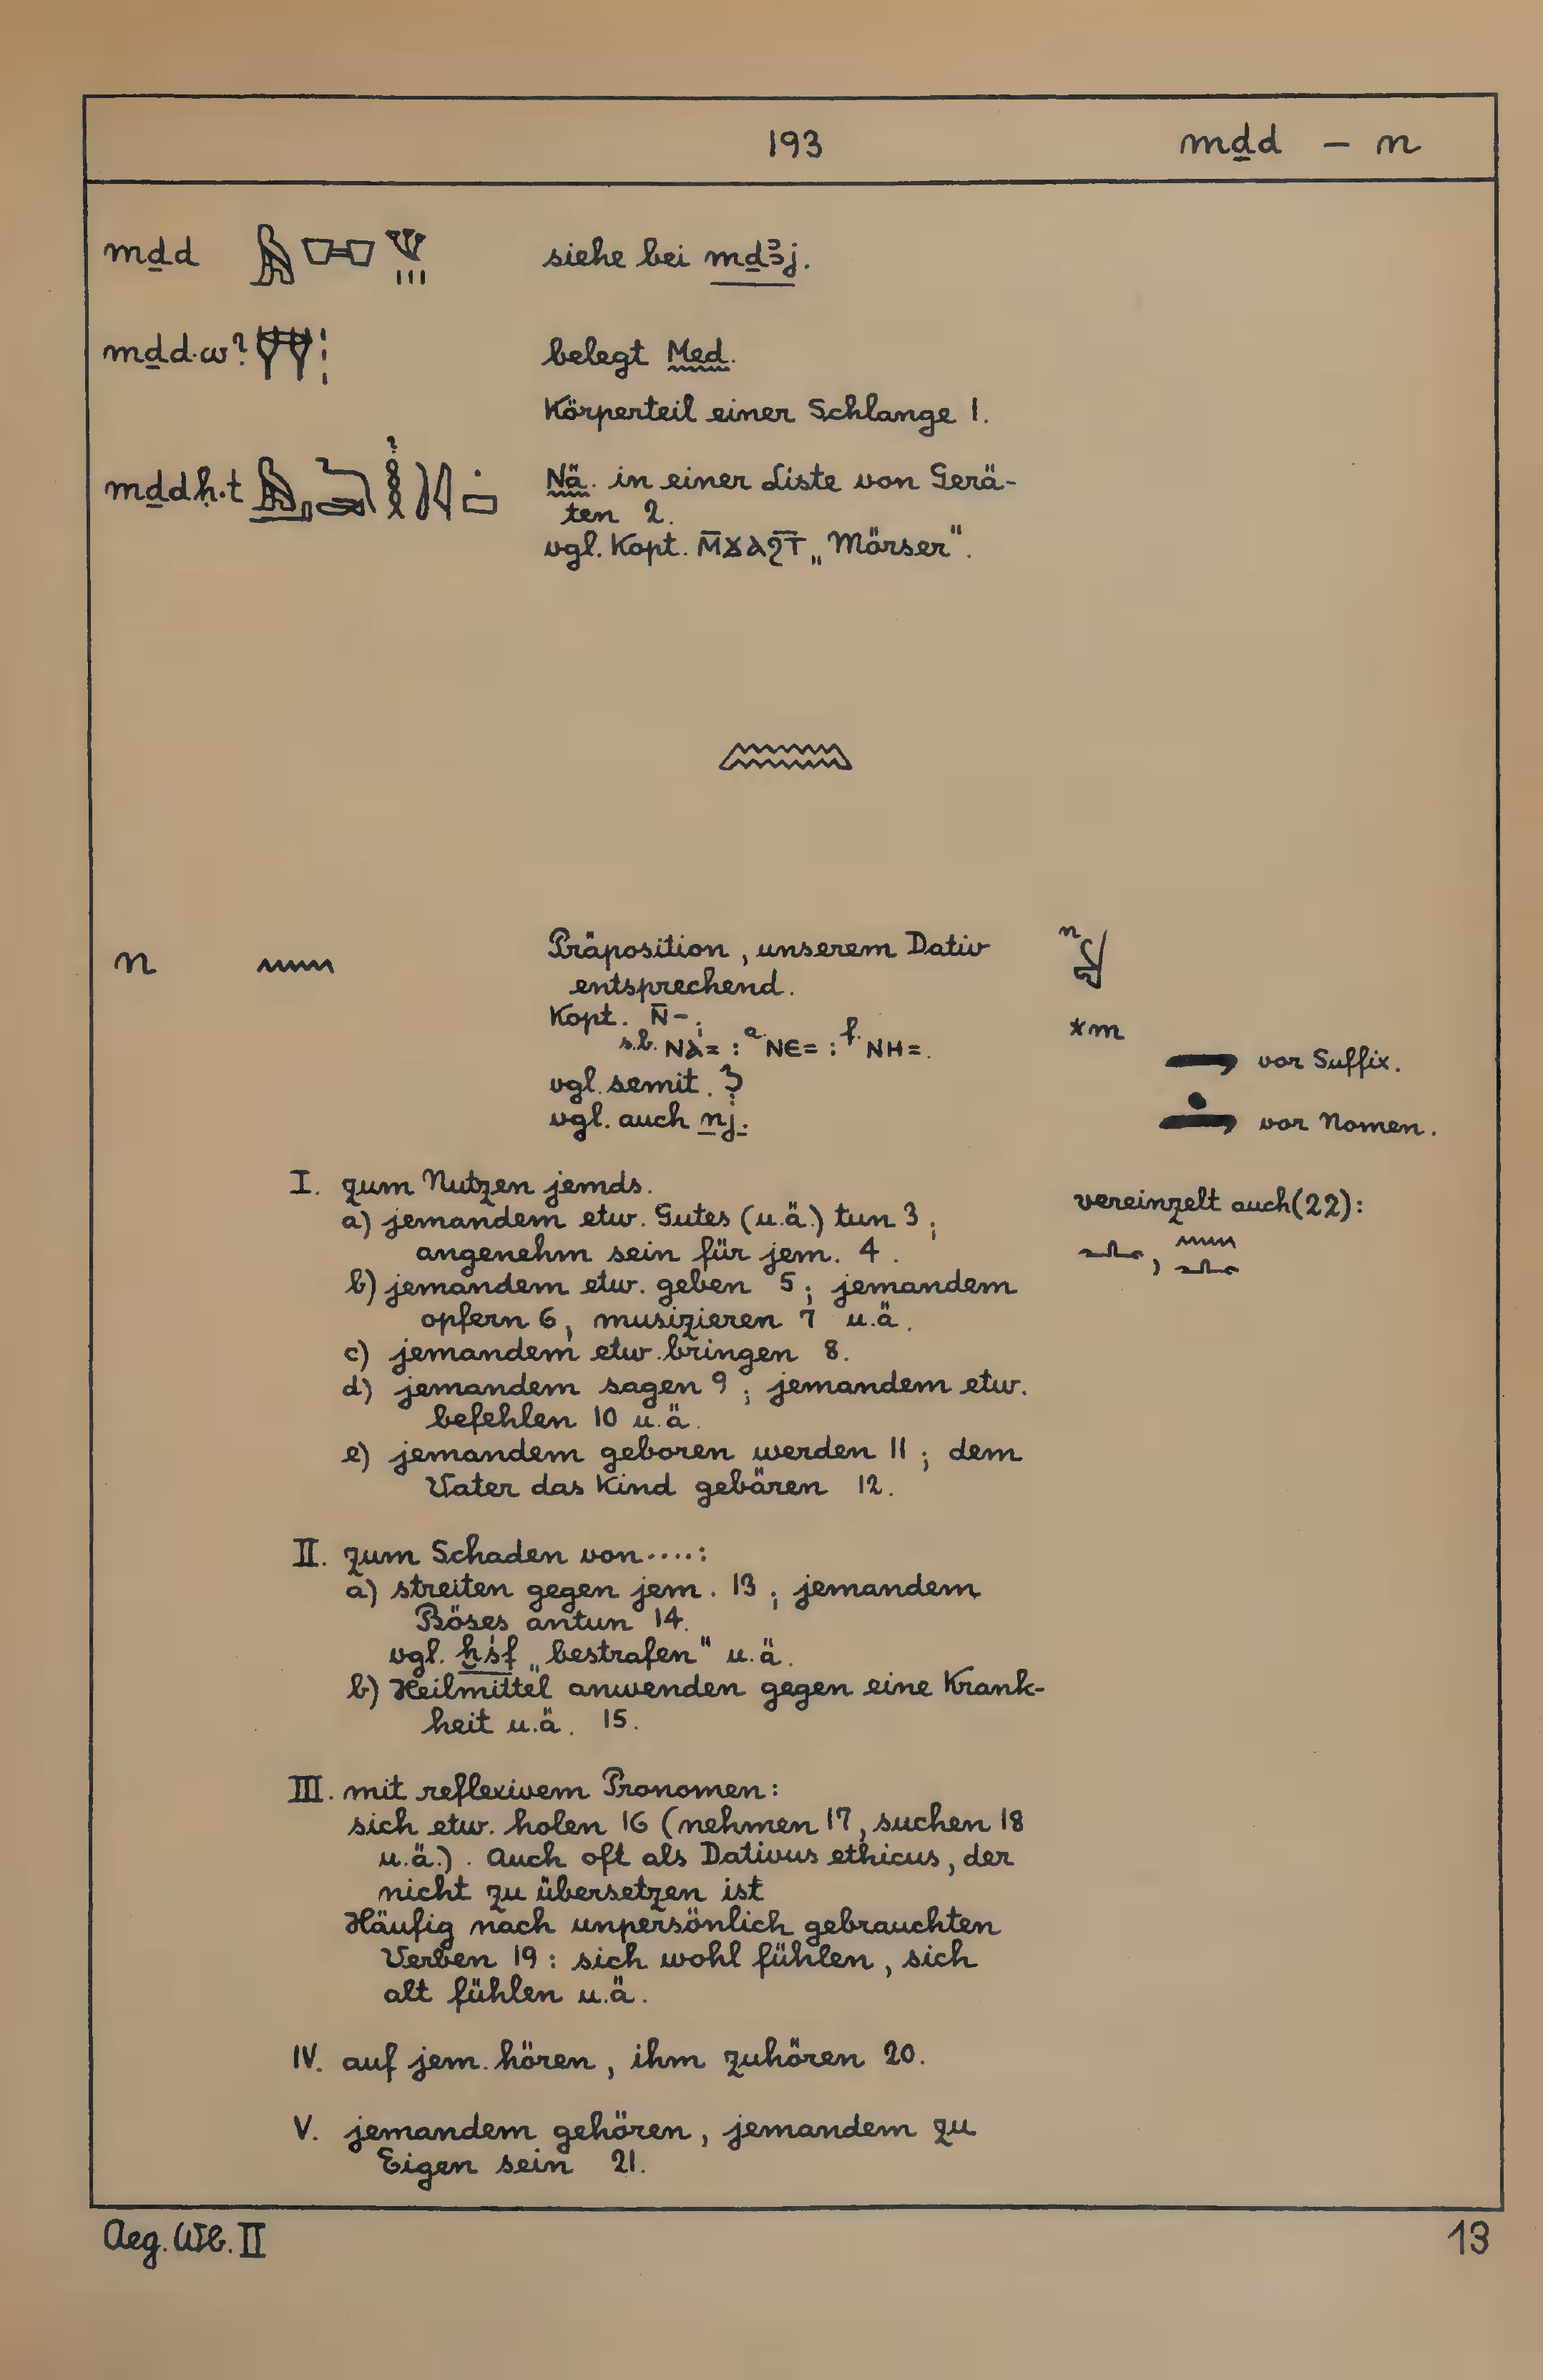 193 mḏd – n
mḏd siehe bei mḏꜣj.
mḏd·w? belegt Med.
Körperteil einer Schlange 1.
mḏdḥ·t Nä. in einer Liste von Gerä-
ten 2.
vgl. Kopt. „Mörser“.
n Präposition, unserem Dativ
entsprechend.
Kopt. N̄-;
s.b. ⲚⲀ= : a. ⲚⲈ= : f. ⲚⲎ=.
vgl. semit.
vgl. auch nj.
n
*m
vor Suffix.
vor Nomen.
vereinzelt auch (22):
I. zum Nutzen jemds.
a) jemandem etw. Gutes (u.ä.) tun 3;
angenehm sein für jem. 4.
b) jemandem etw. geben 5; jemandem
opfern 6, musizieren 7 u.ä.
c) jemandem etw. bringen 8.
d) jemandem sagen 9; jemandem etw.
befehlen 10 u.ä.
e) jemandem geboren werden 11; dem
Vater das Kind gebären 12.
II. zum Schaden von....:
a) streiten gegen jem. 13; jemandem
Böses antun 14.
vgl. ḫśf „bestrafen“ u.ä.
b) Heilmittel anwenden gegen eine Krank-
heit u.ä. 15.
III. mit reflexivem Pronomen:
sich etw. holen 16 (nehmen 17, suchen 18
u.ä.). Auch oft als Dativus ethicus, der
nicht zu übersetzen ist
Häufig nach unpersönlich gebrauchten
Verben 19: sich wohl fühlen, sich
alt fühlen u.ä.
IV. auf jem. hören, ihm zuhören 20.
V. jemandem gehören, jemandem zu
Eigen sein 21.
Aeg. Wb. II 13